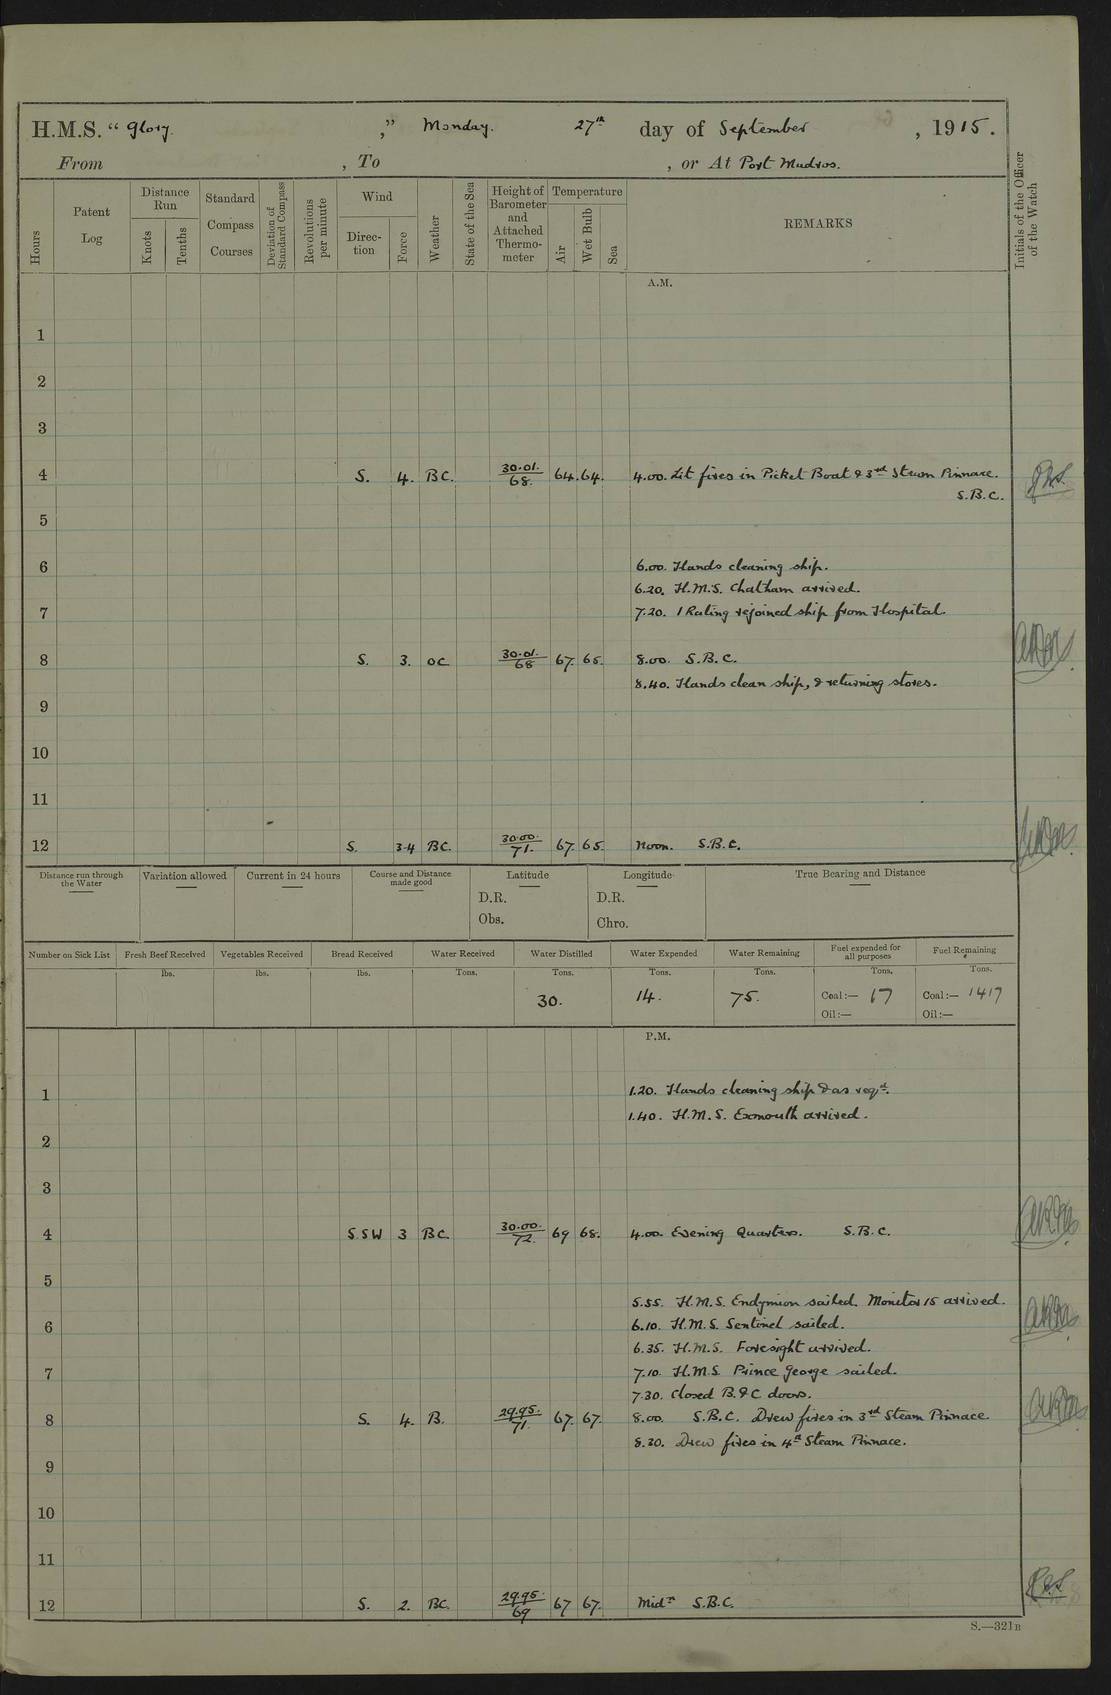 H.M.S. “ Glory. ,” Monday. 27th day of September , 1915.
From , To , or At Port Mudros.
Hours
Patent Log
Distance Run
Knots
Tenths
Standard Compass Courses
Deviation of Standard Compass
Revolutions per minute
Wind
Direction
Force
Weather
State of the Sea
Height of Barometer and Attached Thermometer
Temperature
Air
Wet Bulb
Sea
REMARKS
Initials of the Officer of the Watch
A.M.
1
2
3
4 S. 4. BC. 30.01. 68. 64. 64. 4.00. Lit fires in Picket Boat & 3rd Steam Pinnace.
S.B.C.
5
6 6.00. Hands cleaning ship.
6.20. H.M.S. Chatham arrived.
7 7.20. 1 Rating rejoined ship from Hospital.
8 S. 3. OC 30.01. 68 67. 65. 8.00. S.B.C.
8.40. Hands clean ship, & returning stores.
9
10
11
12 S. 3-4 BC. 30.00. 71. 67. 65. Noon. S.B.C.
Distance run through the Water
Variation allowed
Current in 24 hours
Course and Distance made good
Latitude
Longitude
True Bearing and Distance
D.R. D.R.
Obs. Chro.
Number on Sick List
Fresh Beef Received
Vegetables Received
Bread Received
Water Received
Water Distilled
Water Expended
Water Remaining
Fuel expended for all purposes
Fuel Remaining
lbs. lbs. lbs. Tons. Tons. Tons. Tons. Tons. Tons.
30. 14. 75. Coal:— 17 Coal:— 1417
Oil:— Oil:—
P.M.
1 1.20. Hands cleaning ship & as reqd.
1.40. H.M.S. Exmouth arrived.
2
3
4 S.SW 3 BC. 30.00. 72. 69 68. 4.00. Evening Quarters. S.B.C.
5
5.55. H.M.S. Endymion sailed. Monitor 15 arrived.
6 6.10. H.M.S. Sentinel sailed.
6.35. H.M.S. Foresight arrived.
7 7.10. H.M.S. Prince George sailed.
7.30. Closed B.&C doors.
8 S. 4. B. 29.95. 71. 67. 67. 8.00. S.B.C. Drew fires in 3rd Steam Pinnace.
8.30. Drew fires in 4th Steam Pinnace.
9
10
11
12 S. 2. BC. 29.95. 69 67 67. Midt. S.B.C.
S.—321B